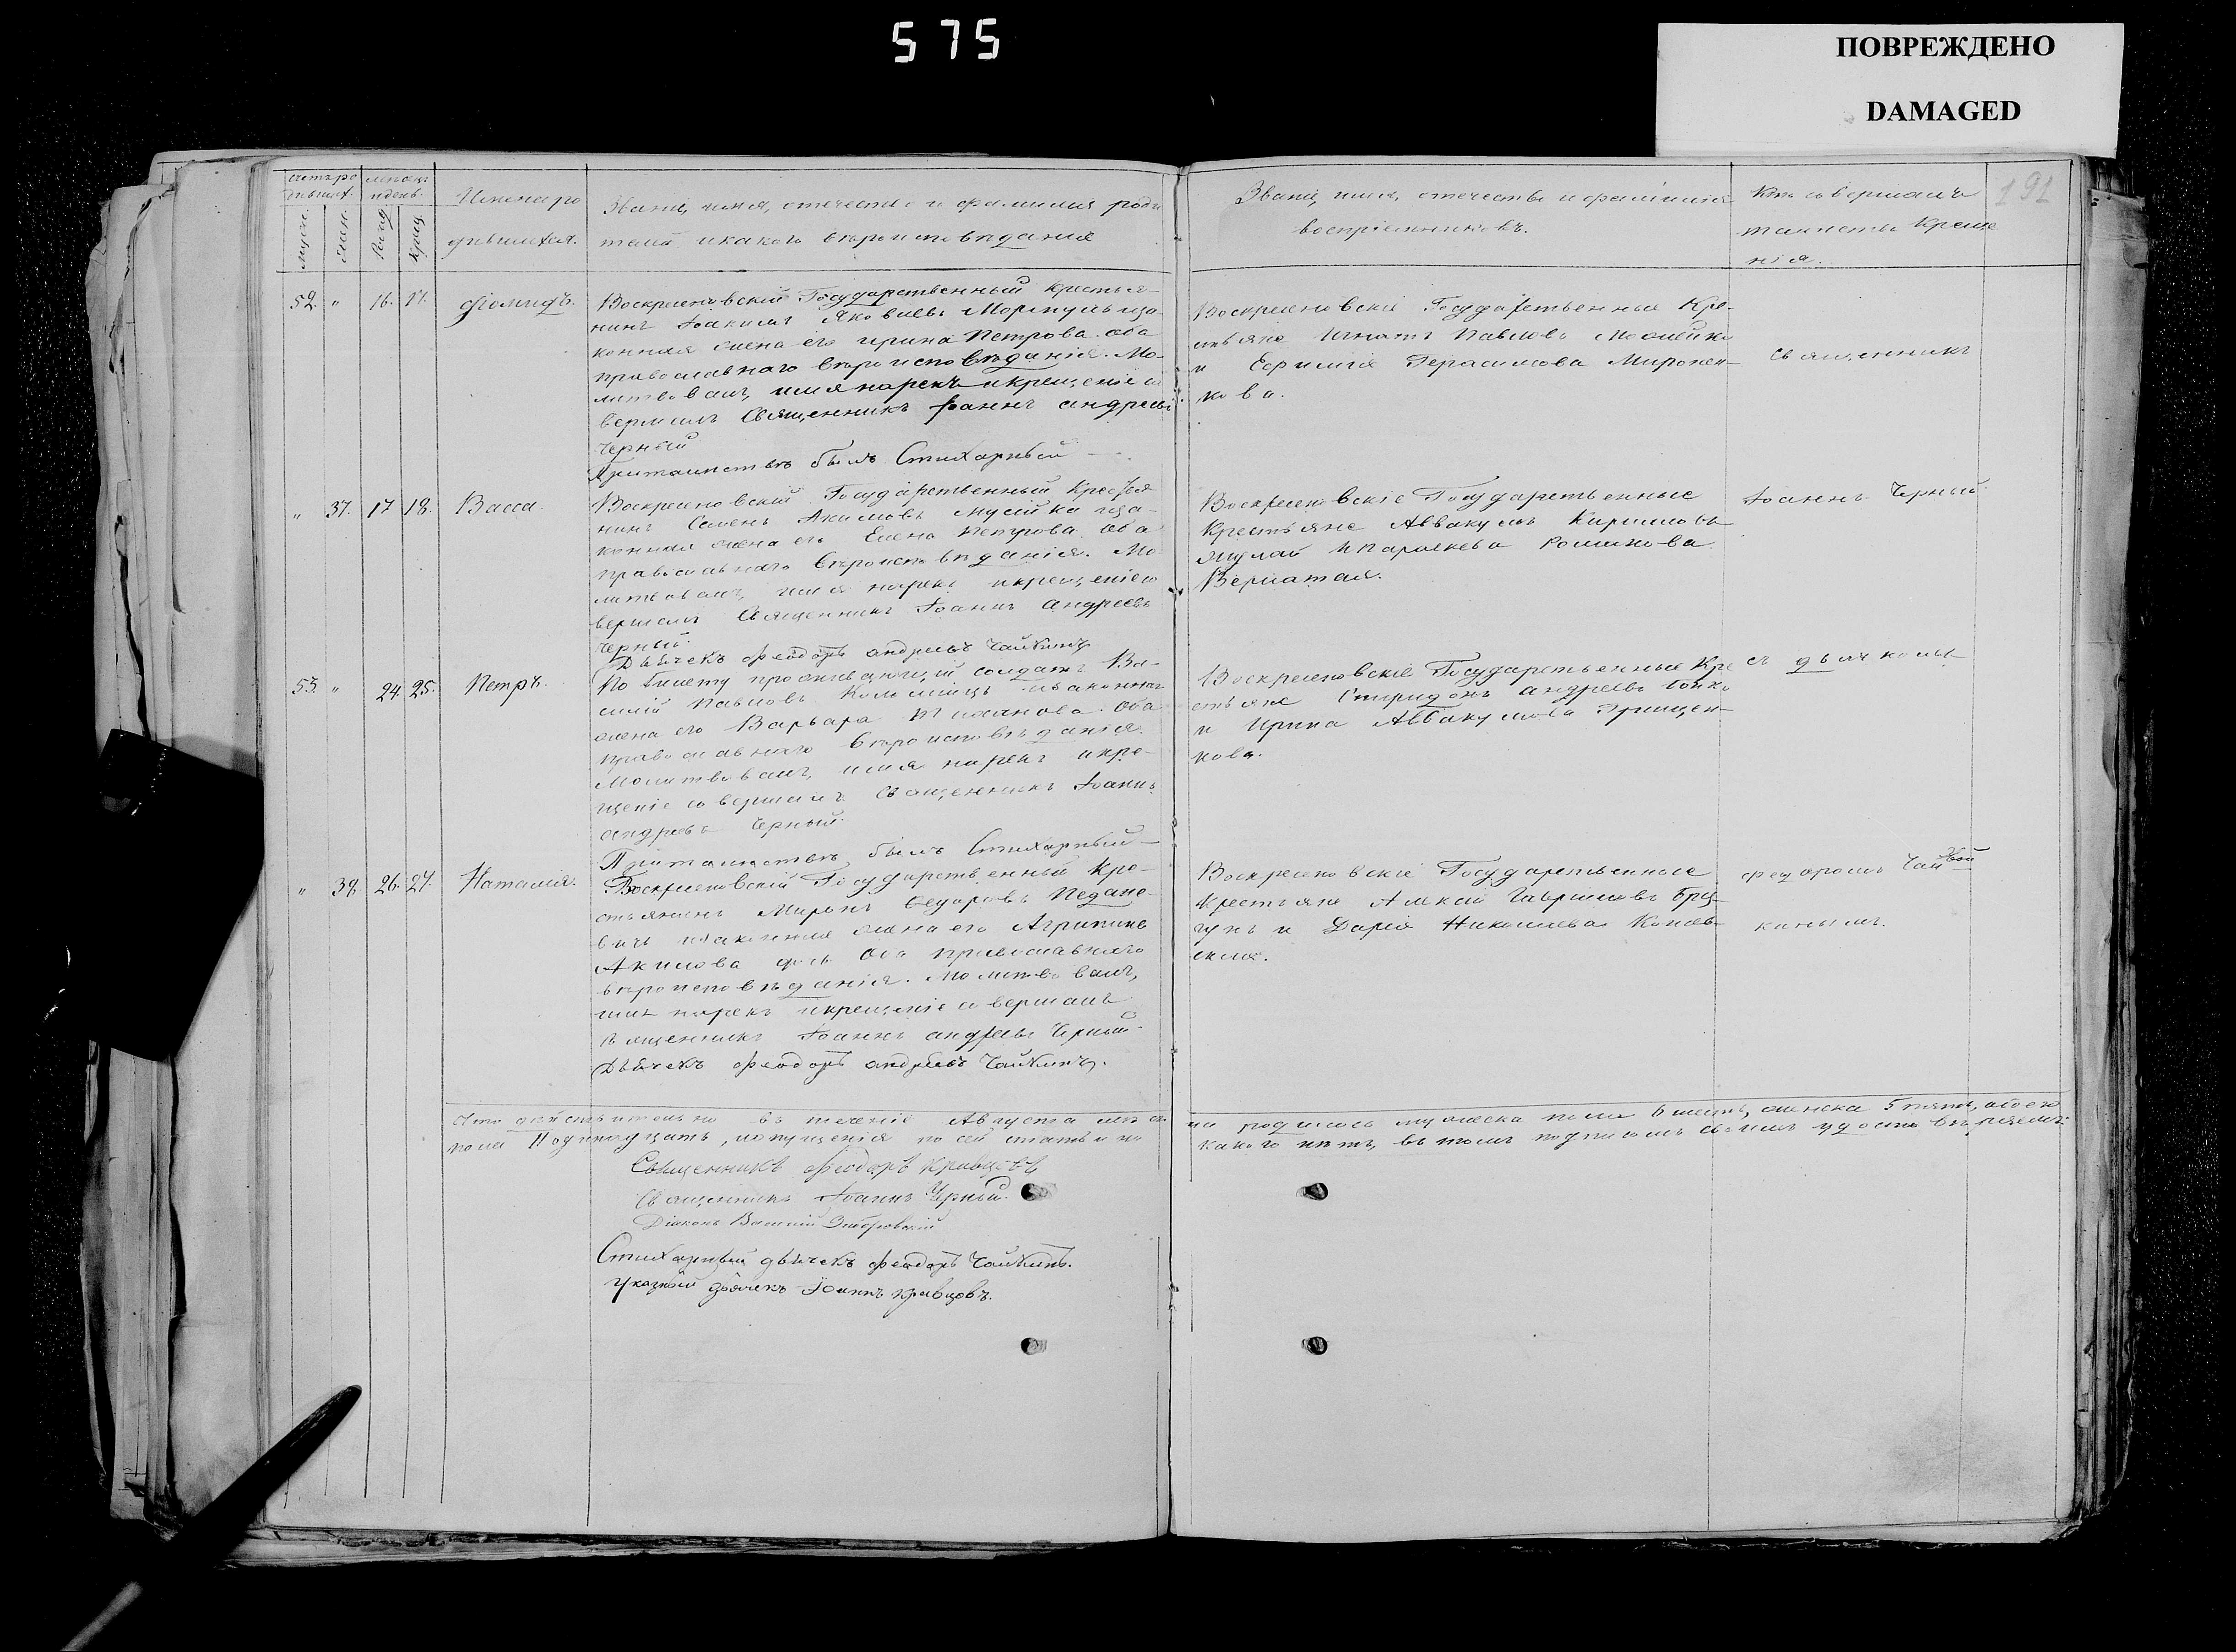 575
ПОВРЕЖДЕНО
DAMAGED
191
счетъ ро
дившихъ.
мѣсяцъ
и день
муж.
жен.
Рож.
крещ.
Имена ро
дившихъ.
Званіе, имя, отечество и фамилия роди
телей и какого вѣроисповѣданія
Званіе, имя, отечество и фамилія
воспріемниковъ.
Кто совершалъ
таинство Креще
нія.
52. " 16. 17. Діомидъ.
Воскресеновскій Государственный крестья-
нинъ Іоакимъ Яковлевъ и за-
конная жена его Ирина Петрова. оба
православнаго вѣроисповѣданія. Мо-
литвовалъ, имя нарекъ и крещеніе со
вершилъ Священникъ Іоаннъ андреевъ
Черный
При таинствѣ былъ Стихарный
Воскресеновскіе Государственные Кре-
стьяне Игнатъ Павловъ
и Ефимія Герасимова Миронен-
кова.
Священникъ
" 37. 17 18. Васса.
Воскресеновскій Государственный Крестья
нинъ Семенъ Акимовъ Мусійко и за-
конная жена его Елена Петрова. оба
православнаго вѣроисповѣданія. Мо
литвовалъ, имя нарекъ и крещеніе со
вершилъ Священникъ Іоаннъ андреевъ
Черный.
Дьячекъ Феодоръ андреевъ Чайкинъ
Воскресеновскіе Государственные
Крестьяне Аввакумъ Кириловъ
и Параскева Романова
Іоаннъ Черный
53. " 24. 25. Петръ.
По билету проживающій солдатъ Ва-
силій Павловъ Коломіецъ и законная
жена его Варвара оба
православнаго вѣроисповѣданія.
Молитвовалъ, имя нарекъ и кре-
щеніе совершилъ Священникъ Іоаннъ
андреевъ Черный.
При таинствѣ былъ Стихарный
Воскресеновскіе Государственные Кре
стьяне Спиридонъ андреевъ Бойко
и Ирина Аввакумова Грищен-
кова.
съ дьячкомъ
" 38. 26. 27. Наталія.
Воскресеновскій Государственный Кре-
стьянинъ Миронъ Федоровъ
и законная жена его Агрипина
Акимова оба православнаго
вѣроисповѣданія. Молитвовалъ,
имя нарекъ и крещеніе совершалъ
Священникъ Іоаннъ андреевъ Черный.
Дьячекъ Феодоръ андреевъ Чайкинъ.
Воскресеновскіе Государственные
Крестьяне Алексій Гавріиловъ
и Дарія Николаева
Федоромъ Чай
кинымъ.
Что дѣйствительно въ теченіе Августа мѣся
ца родилось мужеска пола 6 шесть, женска 5 пять, обоего
пола 11 одинадцать, и опущенія по сей статьѣ ни
какого нѣтъ, въ томъ подписомъ своимъ удостовѣряемъ:
Священникъ Феодоръ Кравцовъ
Священникъ Іоаннъ Черный.
Діаконъ Василій
Стихарный дьячекъ Феодоръ Чайкинъ.
Указный дьячекъ Іоаннъ Кравцовъ.